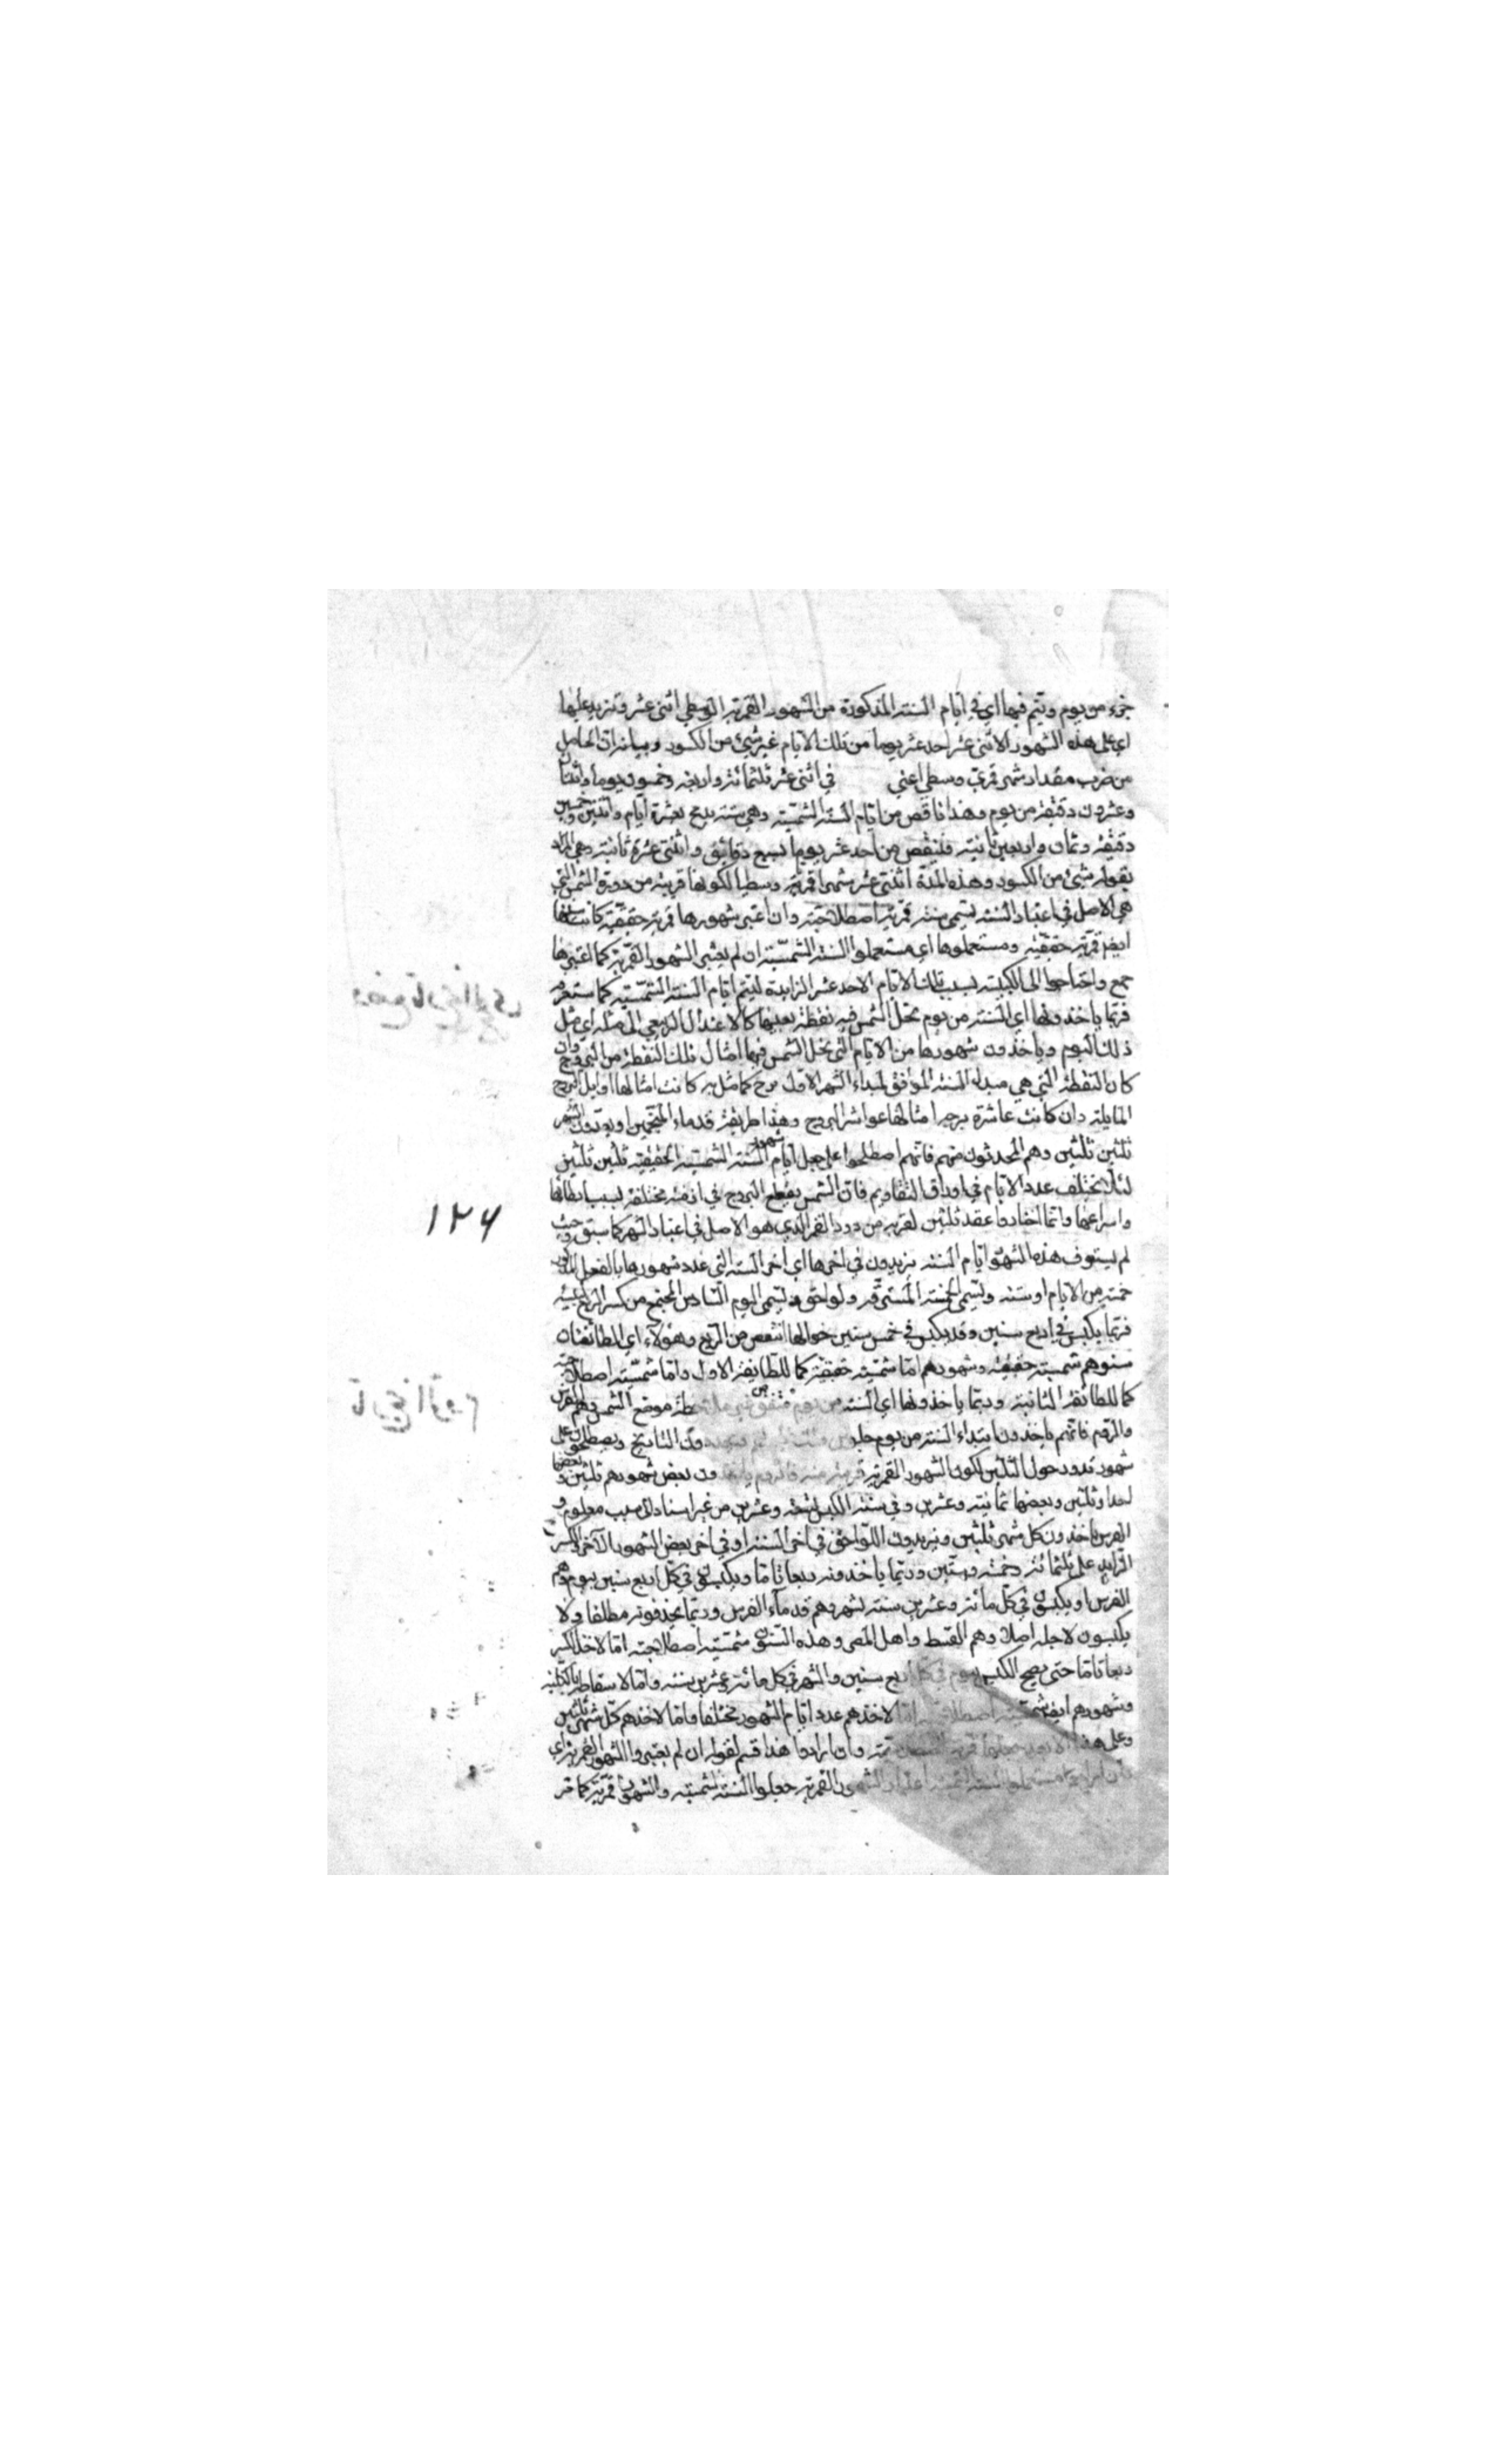 جزء من يوم ويتم فيها اي في ايام السنة المذكورة من الشهور القمرية الوسطى اثنى عشر وتزيد عليها
اي على هذه الشهور الاثنى عشر احد عشر يوما من تلك الايام غير شئ من الكسور وبيانه ان الحاصل
من ضرب مقدار شهر قمري وسطي اعني في اثنى عشر ثلثمائة واربعة وخمسون يوما واثنتان
وعشرون دقيقة من يوم وهذا ناقص من ايام السنة الشمسية وهي بعشرة ايام واثنتين وخمسين
دقيقة وثمان واربعين ثانية فلينقص من احد عشر يوما سبع دقايق واثنتى عشرة ثانية وهي المراد
بقوله شئ من الكسور وهذه المدة اثنتى عشر شهرا قمرية وسطيا لكونها قريبة من دورة الشمس التي
هي الاصل في اعتبار السنة يسمى سنة قمرية اصطلاحية وان اعتبر شهورها قمرية حقيقية كانت سنتها
ايضا قمرية حقيقية ومستعملوها اي مستعملوا السنة الشمسية ان لم يعتبر الشهور القمرية كما اعتبرها
جمع واحتاجوا الى الكبيسة بسبب تلك الايام الاحد عشر الزايدة ليتم ايام السنة الشمسية كما ستعرفه
فربما ياخذونها اي السنة من يوم تحل الشمس فيه نقطة بعينها كالاعتدال الربيعي الى مثله اي مثل
ذلك اليوم وياخذون شهورها من الايام التي تحل الشمس فيها امثال تلك النقطة من البروج وان
كان النقطة التي هي مبداء السنة الموافق لمبداء الشهر الاول برج كما مثل به كانت امثالها اوايل البروج
المايلة وان كانت عاشرة برج امثالها عواشر البروج وهذا طريقة قدماء المنجمين او يعدون الشهر
ثلثين ثلثين وهم المحدثون منهم فانهم اصطلحوا على جعل ايام شهور السنة الشمسية الحقيقية ثلثين ثلثين
لئلا يختلف عدد الايام في اوراق التقاويم فان الشمس يقطع البروج في ازمنة مختلفة بسبب ابطائها
واسراعها وانما اختاروا عقد ثلثين لقربه من دور القمر الذي هو الاصل في اعتبار الشهر كما سبق وحيث
لم يستوف هذه الشهور ايام السنة يزيدون في اخرها اي اخر السنة التي عدد شهورها بالفعل
خمسة من الايام او ستة ويسمى الخمسة المسترقة ولواحق ويسمى اليوم السادس المجتمع من كسر الربع كبيسة
فربما يكبس في اربع سنين وقد يكبس في خمس سنين انقص من الربع وهؤلاء اي الطائفتان
سنوهم شمسية حقيقية وشهورهم اما شمسية حقيقية كما للطايفة الاولى واما شمسية اصطلاحية
كما للطائفة الثانية وربما ياخذونها اي السنة من يوم متفق من غير ملاحظة موقع الشمس وهم الفرس
والروم فانهم ياخذون ابتداء السنة من يوم جلوس التاريخ ويصطلحون على
شهور تدور حول الثلثين لكون الشهور القمرية قريبة منه فالروم ياخذون بعض شهورهم ثلثين وبعضها
احدا وثلثين وبعضها ثمانية وعشرين وفي سنة الكبس تسعة وعشرين من غير استناد الى سبب معلوم و
الفرس ياخذون كل شهر ثلثين ويزيدون اللواحق في اخر السنة او في اخر بعض الشهور الآخر والكسر
الزايد على ثلثمائة وخمسة وستين وربما ياخذونه ربعا تاما ويكبسون في كل اربع سنين بيوم وهم
الفرس او يكبسون في كل مائة وعشرين سنة بشهر وهم قدماء الفرس وربما يحذفونه مطلقا ولا
يكبسون لاجله اصلا وهم القبط واهل المصر وهذه السنون شمسية اصطلاحية اما لاخذ الكسر
ربعا تاما حتى يصح الكبس بيوم في كل اربع سنين والشهر في كل مائة وعشرين سنة واما لاسقاطه بالكلية
وشهورهم ايضا شمسية اصطلاحية اما لاخذهم عدد ايام الشهور مختلفا واما لاخذهم كل شهر ثلثين
وعلى هذا وان ارادوا هذا قسم لقوله ان لم يعتبروا الشهور القمرية اي
مستعملوا السنة الشمسية اعتبار الشهور القمرية جعلوا السنة شمسية والشهور قمرية كما مر
١٢٦
تاريخ الروم